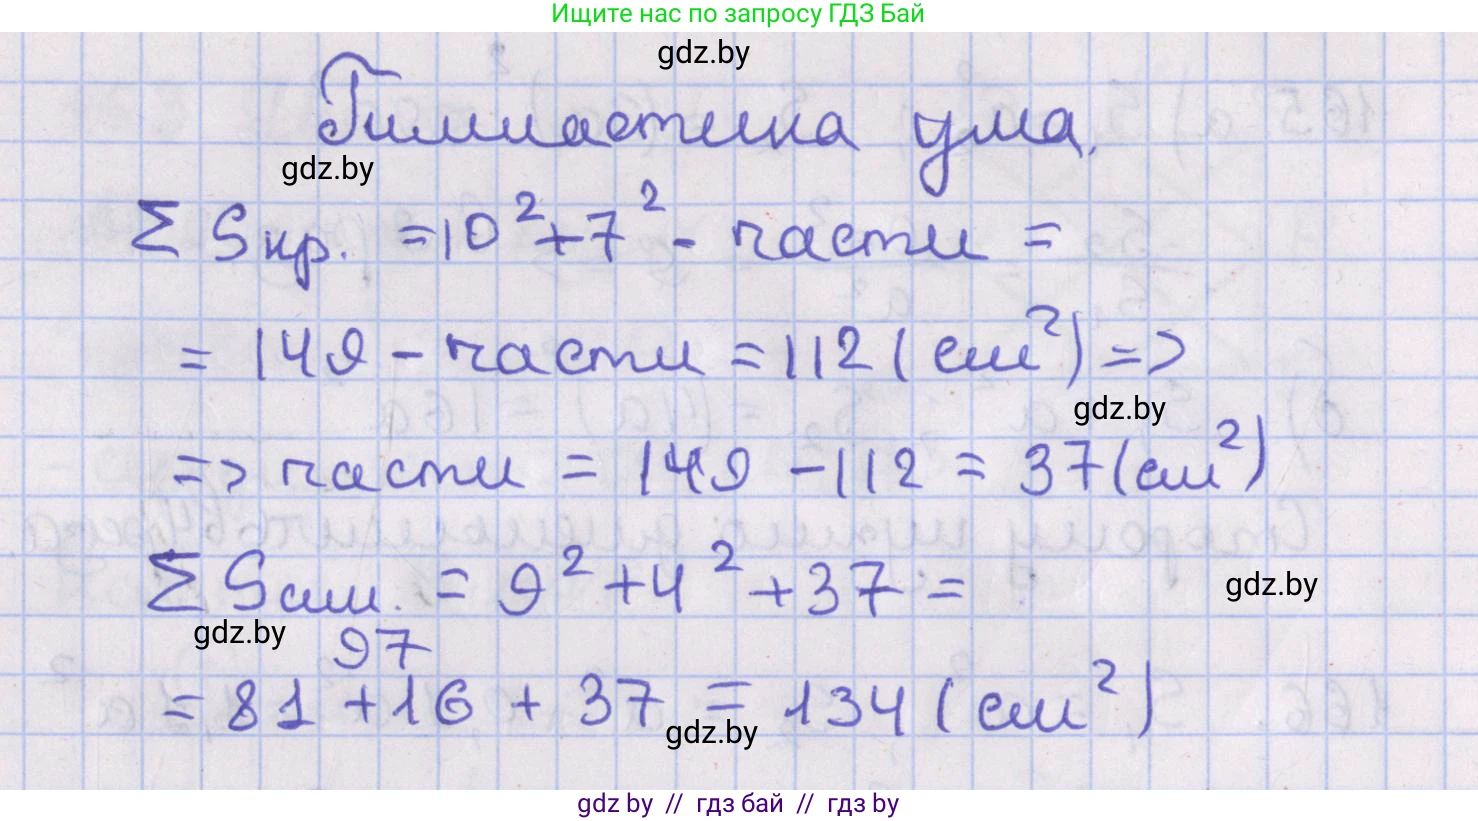 Ищите нас по запросу ГДЗ Бай
gdz.by
Гимнастика ума.
gdz.by
Σ Sкр. = 10² + 7² - части =
= 149 - части = 112 (см²) =>
gdz.by
=> части = 149 - 112 = 37 (см²)
Σ Sсин. = 9² + 4² + 37 =
gdz.by
gdz.by
97
= 81 + 16 + 37 = 134 (см²)
gdz.by
gdz by // гдз бай // гдз by